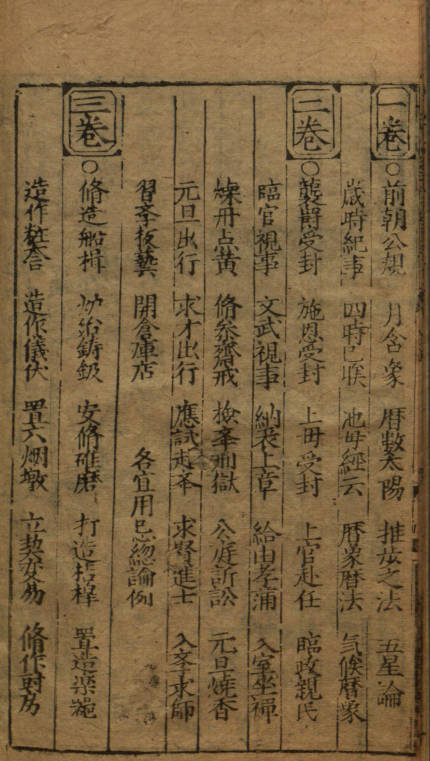 一卷○前朝公規 月令象 暦數太陽 推步之法 五星論
歲時紀事 四時已候 池毋經云 暦象暦法 気候暦象
二卷○襲爵受封 施恩受封 上冊受封 上官赴任 臨政親民
臨官視事 文武視事 納表上章 給由考滿 入室坐禅
煉丹点黄 脩祭齋戒 撿李刑獄 公庭訴訟 元旦燒香
元旦出行 求才出行 應試赴牽 求賢進士 入李求師
習李技藝 開倉庫店 各宜用忌總論例
三卷○脩造船楫 炉冶鑄鈒 安脩碓磨 打造桔槔 置造染菀
造作粧奩 造作儀仗 置六烟墩 立契交易 脩作厨房